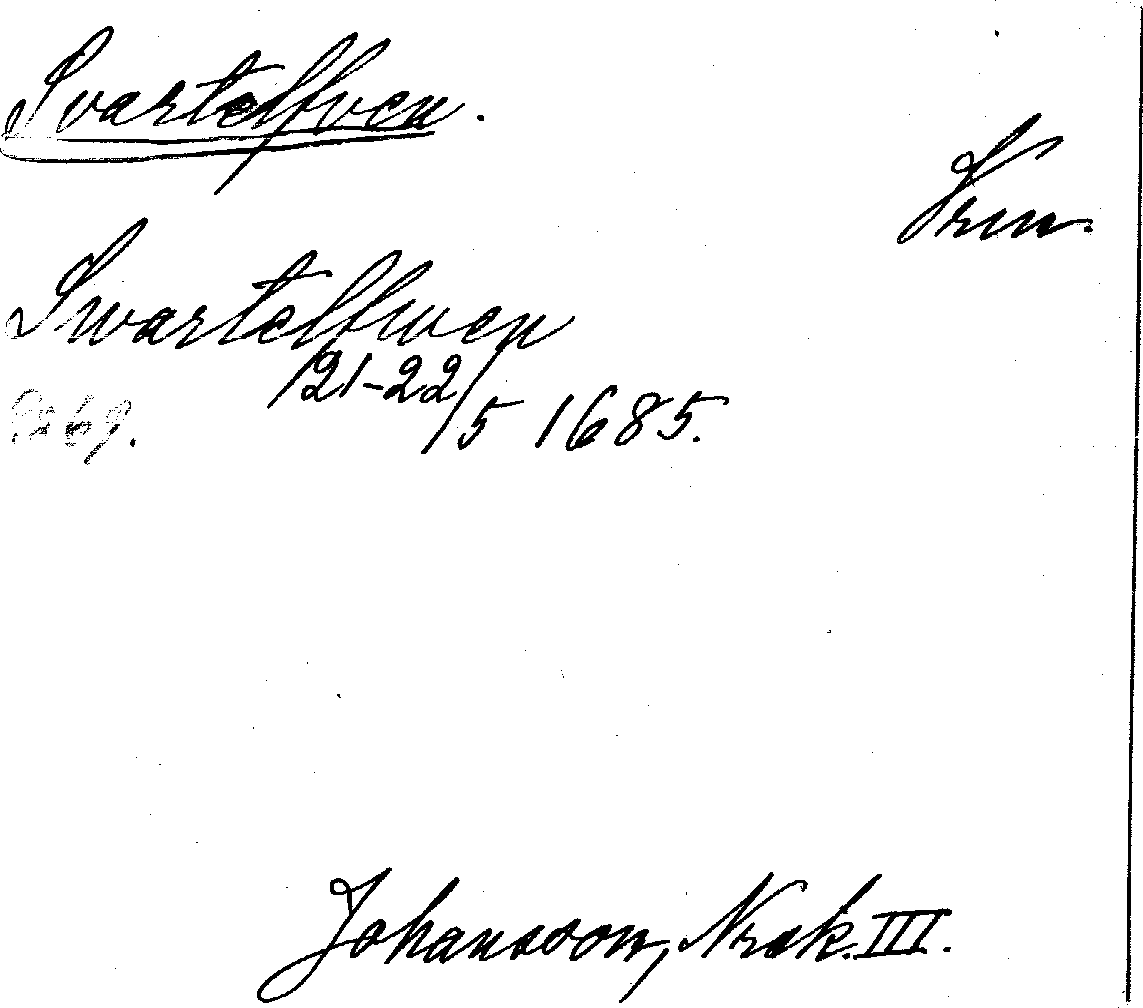 Svartelfven.
Vrm.
Swartelfwen
21-22/5 1685.
69.
Johansson, Nrsk. III.